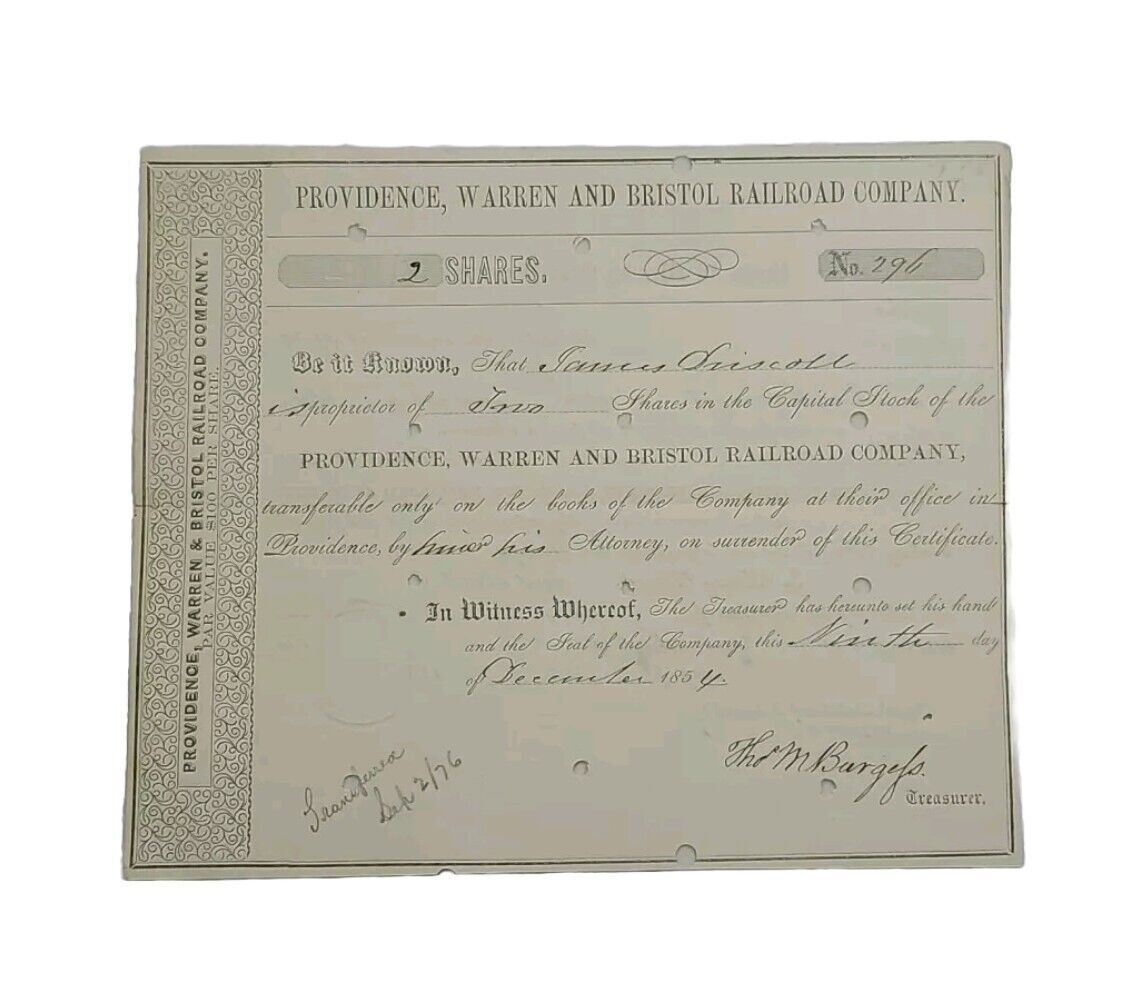 PROVIDENCE, WARREN AND BRISTOL RAILROAD COMPANY.
2 SHARES.
No. 296
Be it Known, That James Driscoll
is proprietor of Two Shares in the Capital Stock of the
PROVIDENCE, WARREN AND BRISTOL RAILROAD COMPANY,
transferable only on the books of the Company at their office in
Providence, by him or his Attorney, on surrender of this Certificate.
In Witness Whereof, The Treasurer has hereunto set his hand
and the Seal of the Company, this Ninth day
of December 1854.
Thos M Burgess.
Treasurer.
Transferred
Sep 2/76
PROVIDENCE, WARREN & BRISTOL RAILROAD COMPANY.
PAR VALUE $100 PER SHARE.